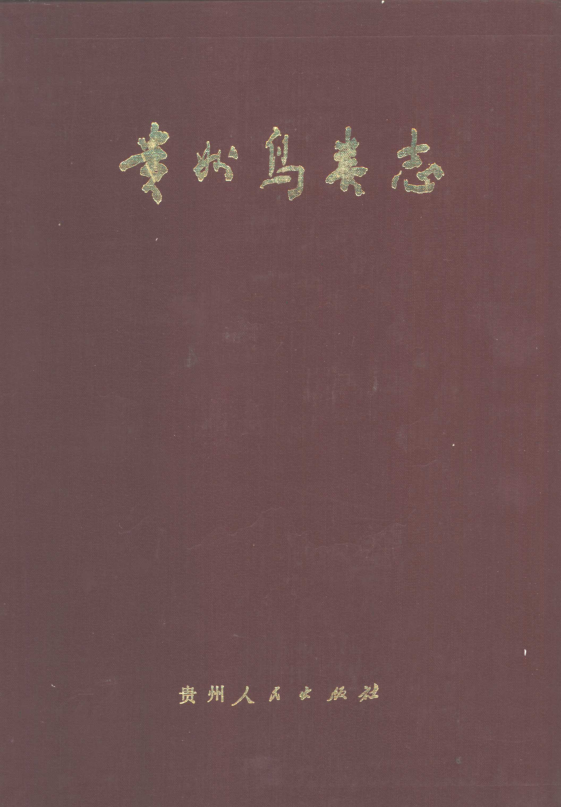 贵州鸟类志
贵州人民出版社